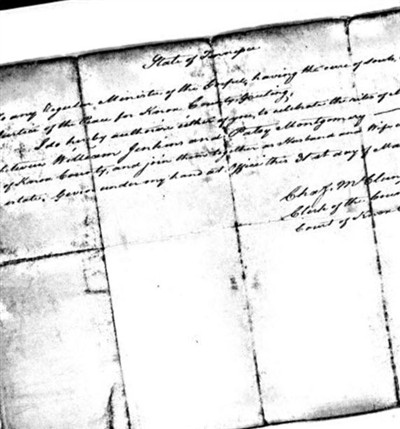 State of Tennessee
To any Regular Minister of the Gospel, having the care of souls
Justice of the Peace for Knox County, Greeting;
I do hereby authorize either of you, to celebrate the rites of M
between William Jenkins and Patsy Montgomery
of Knox County, and join them together as Husband and Wife
Given under my hand at Office this 31st day of Ma
Chas. McClung
Clerk of the Coun
Court of Knox C